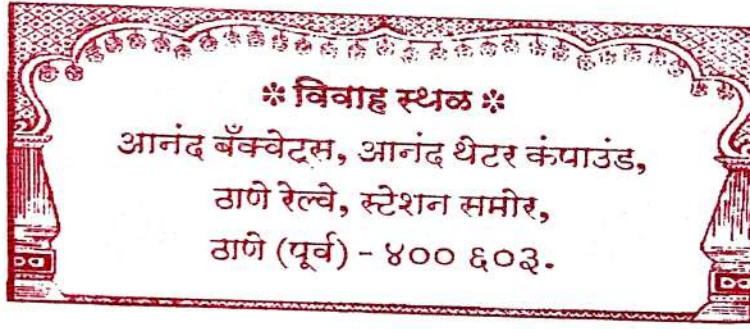 ❊ विवाह स्थळ ❊
आनंद बँक्वेट्स, आनंद थेटर कंपाउंड,
ठाणे रेल्वे, स्टेशन समोर,
ठाणे (पूर्व) - ४०० ६०३.